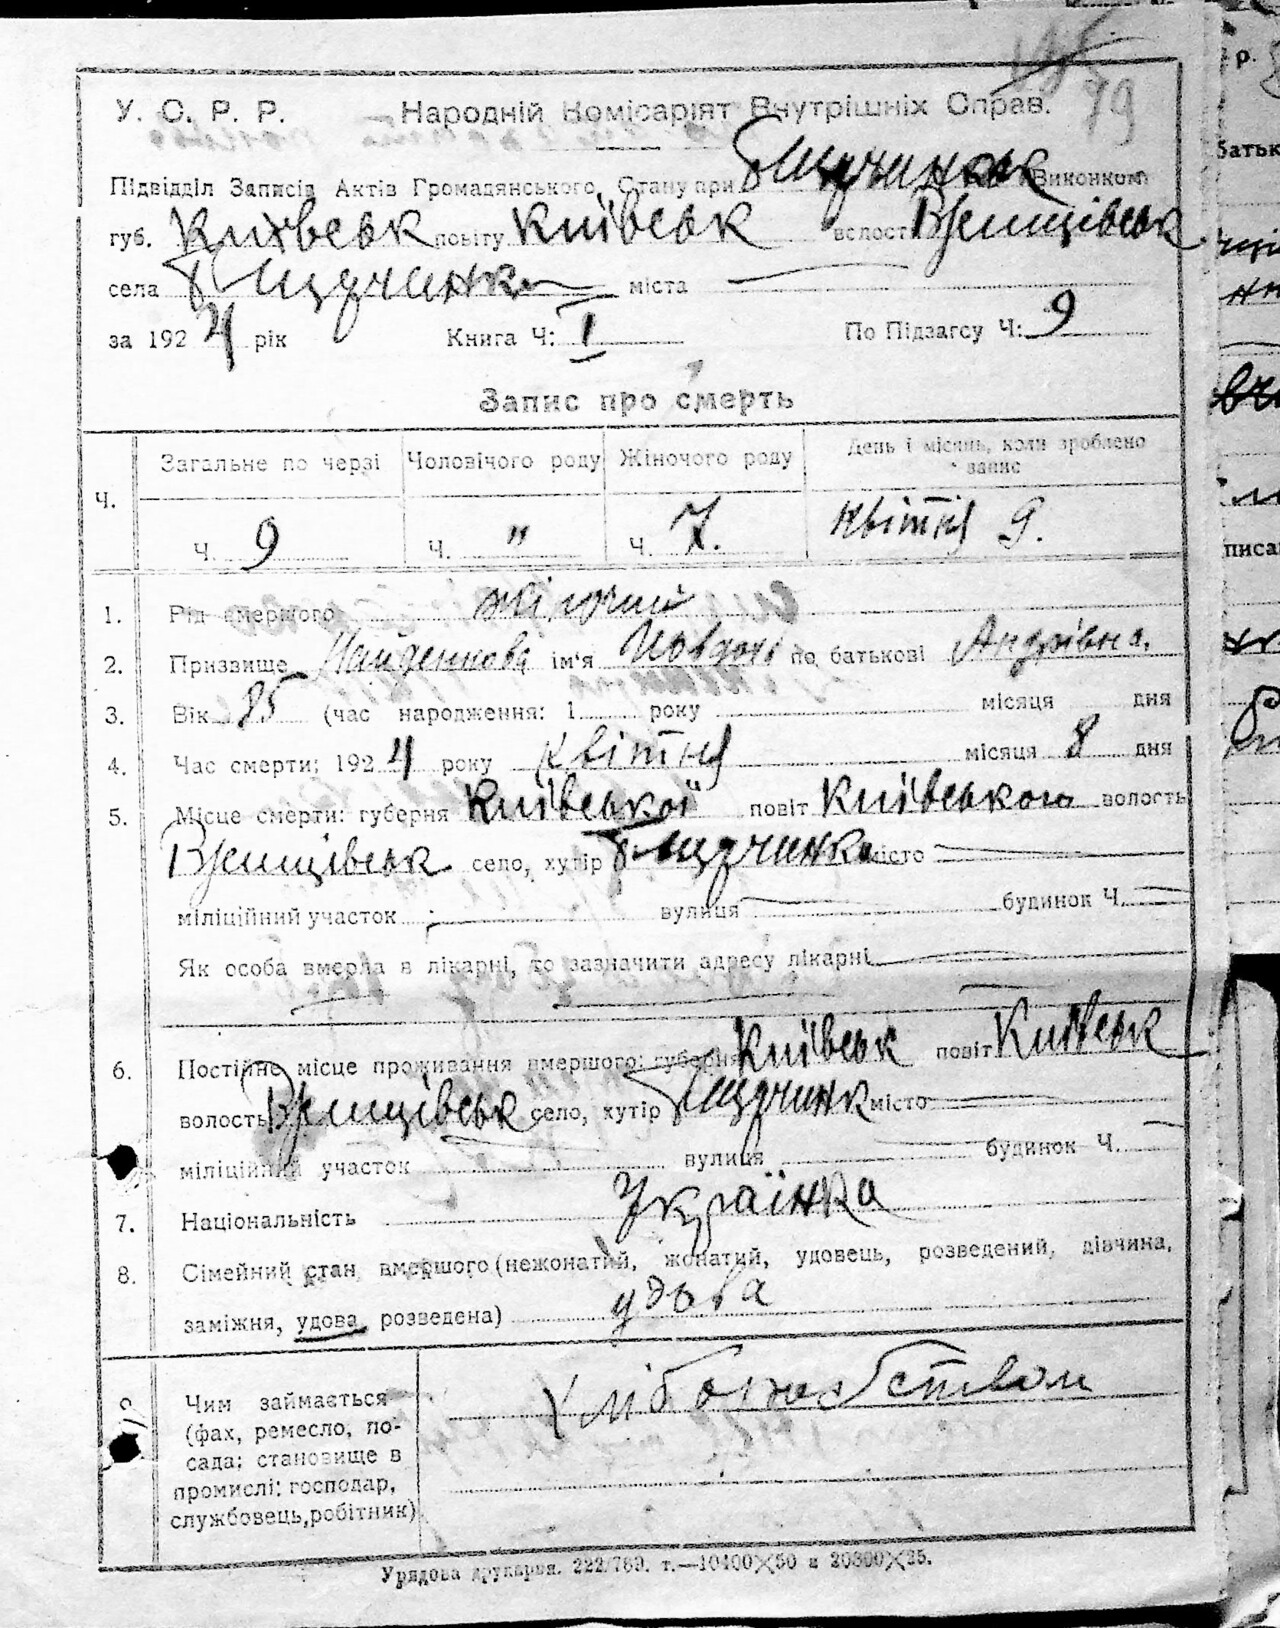 79
У. С. Р. Р. Народній Комісаріят Внутрішніх Справ.
Підвідділ Записів Актів Громадянського Стану при Виконком
губ. Київськ повіту Київськ волост Ржищівськ
села міста
за 1924 рік Книга Ч: I По Підзагсу Ч: 9
Запис про смерть
Ч. Загальне по черзі Чоловічого роду Жіночого роду День і місяць, коли зроблено запис
Ч. 9 Ч. " Ч. 7. Квітня 9.
1. Рід вмершого жіночий
2. Призвище Найденкова ім'я Йовдоха по батькові Андріівна.
3. Вік 85 (час народження: 1 року місяця дня
4. Час смерти: 1924 року Квітня місяця 8 дня
5. Місце смерти: губерня Київської повіт Київського волость
Ржищівськ село, хутір місто
міліційний участок вулиця будинок Ч.
Як особа вмерла в лікарні, то зазначити адресу лікарні
6. Постійне місце проживання вмершого: губерня Київськ повіт Київськ
волость Ржищівськ село, хутір місто
міліційний участок вулиця будинок Ч.
7. Національність Українка
8. Сімейний стан вмершого (нежонатий, жонатий, удовець, розведений, дівчина,
заміжня, удова, розведена) удова
9. Чим займається Хліборобством
(фах, ремесло, по-
сада; становище в
промислі: господар,
службовець, робітник)
Урядова друкарня. 222/789. т.—10400×50 и 20300×25.